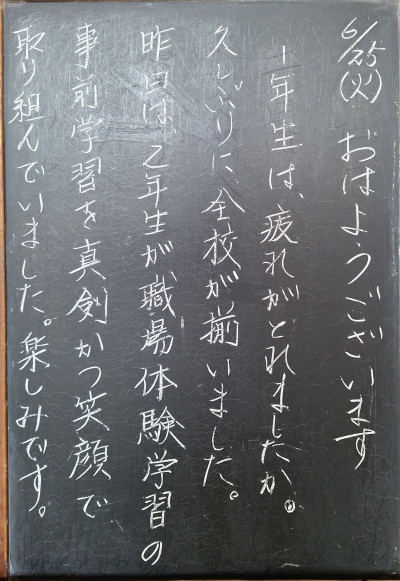 6/25(火) おはようございます
1年生は、疲れがとれましたか。
久しぶりに、全校が揃いました。
昨日は、2年生が職場体験学習の
事前学習を真剣かつ笑顔で
取り組んでいました。楽しみです。